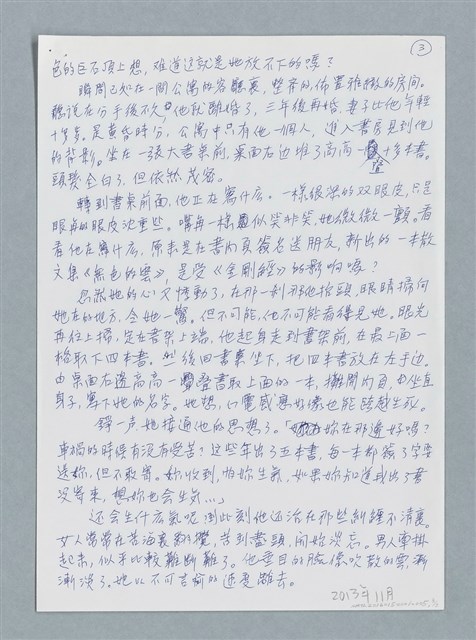 ③
色的巨石頂上想，难道这就是她放不下的嗎？
瞬間已站在一間公寓的客廳裏，整齐的佈置雅緻的房间。
聽说在分手後不久，他就離婚了，三年後再婚，妻子比他年輕
十多岁。是黄昏時分，公寓中只有他一個人，進入書房見到他
的背影。坐在一張大書桌前，桌面右边堆了高高一叠十多本書。
頭髮全白了，但依然茂密。
轉到書桌前面，他正在寫什広。一樣很深的双眼皮，只是
眼角的眼皮沈重些。嘴角一樣似笑非笑，她微微一顫。看
看他在寫什広，原來是在書内頁簽名送朋友，新出的一本散
文集《無色的雲》，是受《金剛經》的影响嗎？
忽然她的心又悸動了，在那一刹那他抬頭，眼睛掃向
她在的地方，令她一驚。但不可能，他不可能看得見她。眼光
再往上掃，定在書架上端，他起身走到書架前，在最上面一
格取下四本書。然後回書桌坐下，把四本書放在左手边。
由桌面右邊高高一叠書取上面的一本，攤開内頁，坐直
身子，寫下她的名字。她想，心電感應好像也能跨越生死。
錚一声她接通他的思想了。「妳在那邊好嗎？
車禍的時候有没有受苦？这些年出了五本書，每一本都簽了字要
送妳，但不敢寄。妳收到，怕妳生氣，如果妳知道我出了書
没寄來，想妳也会生氣…」
还会生什広氣呢，到此刻他还活在那些糾纏不清裏。
女人常常在苦海裏翻攪，苦到盡頭，開始淡忘。男人牽掛
起來，似乎比較難斷難了。他垂目的臉像吹散的雲，漸
漸淡了。她以不可言喻的速度離去。
2013年11月